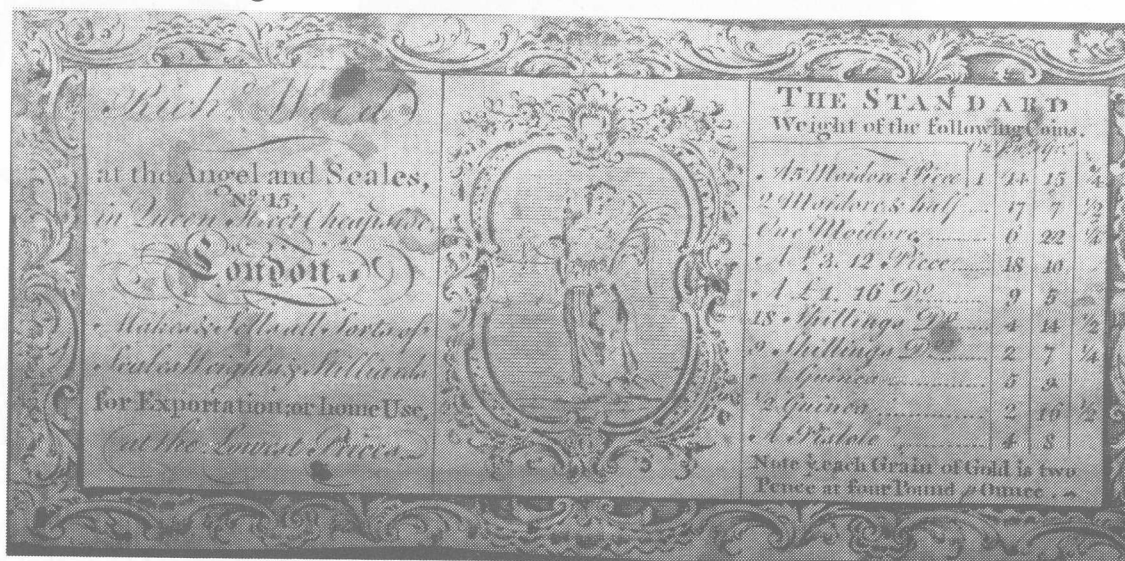 Richd. Wood
at the Angel and Scales,
No. 15,
in Queen Street Cheapside,
London.
Makes & Sells all Sorts of
Scales Weights & Stilliards
for Exportation; or home Use,
at the Lowest Prices.
THE STANDARD
Weight of the following Coins.
oz pw grs
A 5 Moidore Piece 1 14 15 3/4
2 Moidore & half 17 7 1/2
One Moidore 6 22 1/4
A £3. 12 Piece 18 10
A £1. 16 Do. 9 5
18 Shillings Do. 4 14 1/2
9 Shillings Do. 2 7 1/4
A Guinea 5 9
1/2 Guinea 2 16 1/2
A Pistole 4 8
Note each Grain of Gold is two
Pence at four Pound Ounce.